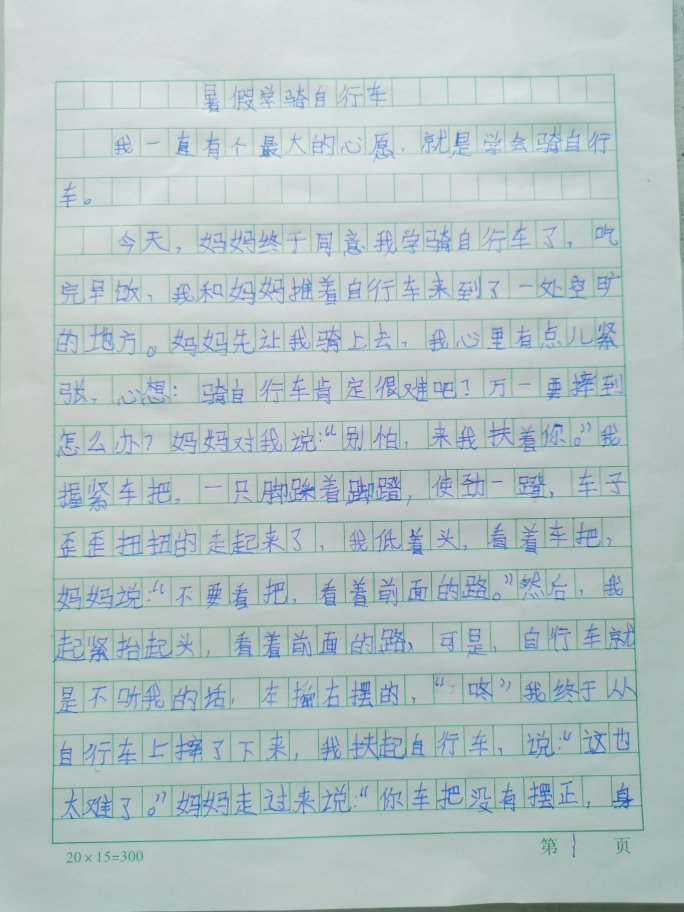 暑假学骑自行车
我一直有个最大的心愿，就是学会骑自行
车。
今天，妈妈终于同意我学骑自行车了，吃
完早饭，我和妈妈推着自行车来到了一处空旷
的地方。妈妈先让我骑上去，我心里有点儿紧
张，心想：骑自行车肯定很难吧？万一要摔到
怎么办？妈妈对我说：“别怕，来我扶着你。”我
握紧车把，一只脚踩着脚蹬，使劲一蹬，车子
歪歪扭扭的走起来了，我低着头，看着车把，
妈妈说：“不要看把，看着前面的路。”然后，我
起紧抬起头，看着前面的路，可是，自行车就
是不听我的话，左摇右摆的，“咚”我终于从
自行车上摔了下来，我扶起自行车，说：“这也
太难了。”妈妈走过来说：“你车把没有摆正，身
20×15=300
第1页